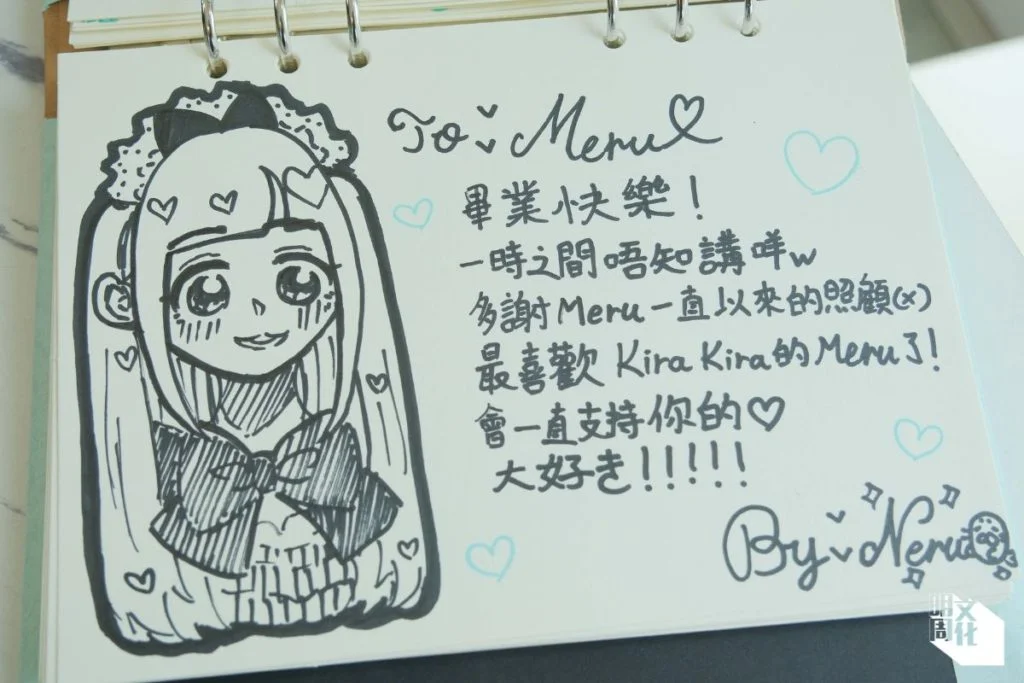 To Meru
畢業快樂！
一時之間唔知講咩w
多謝Meru一直以來的照顧(x)
最喜歡 Kira Kira的Meru了！
會一直支持你的♡
大好き！！！！！
By Neru
明周文化